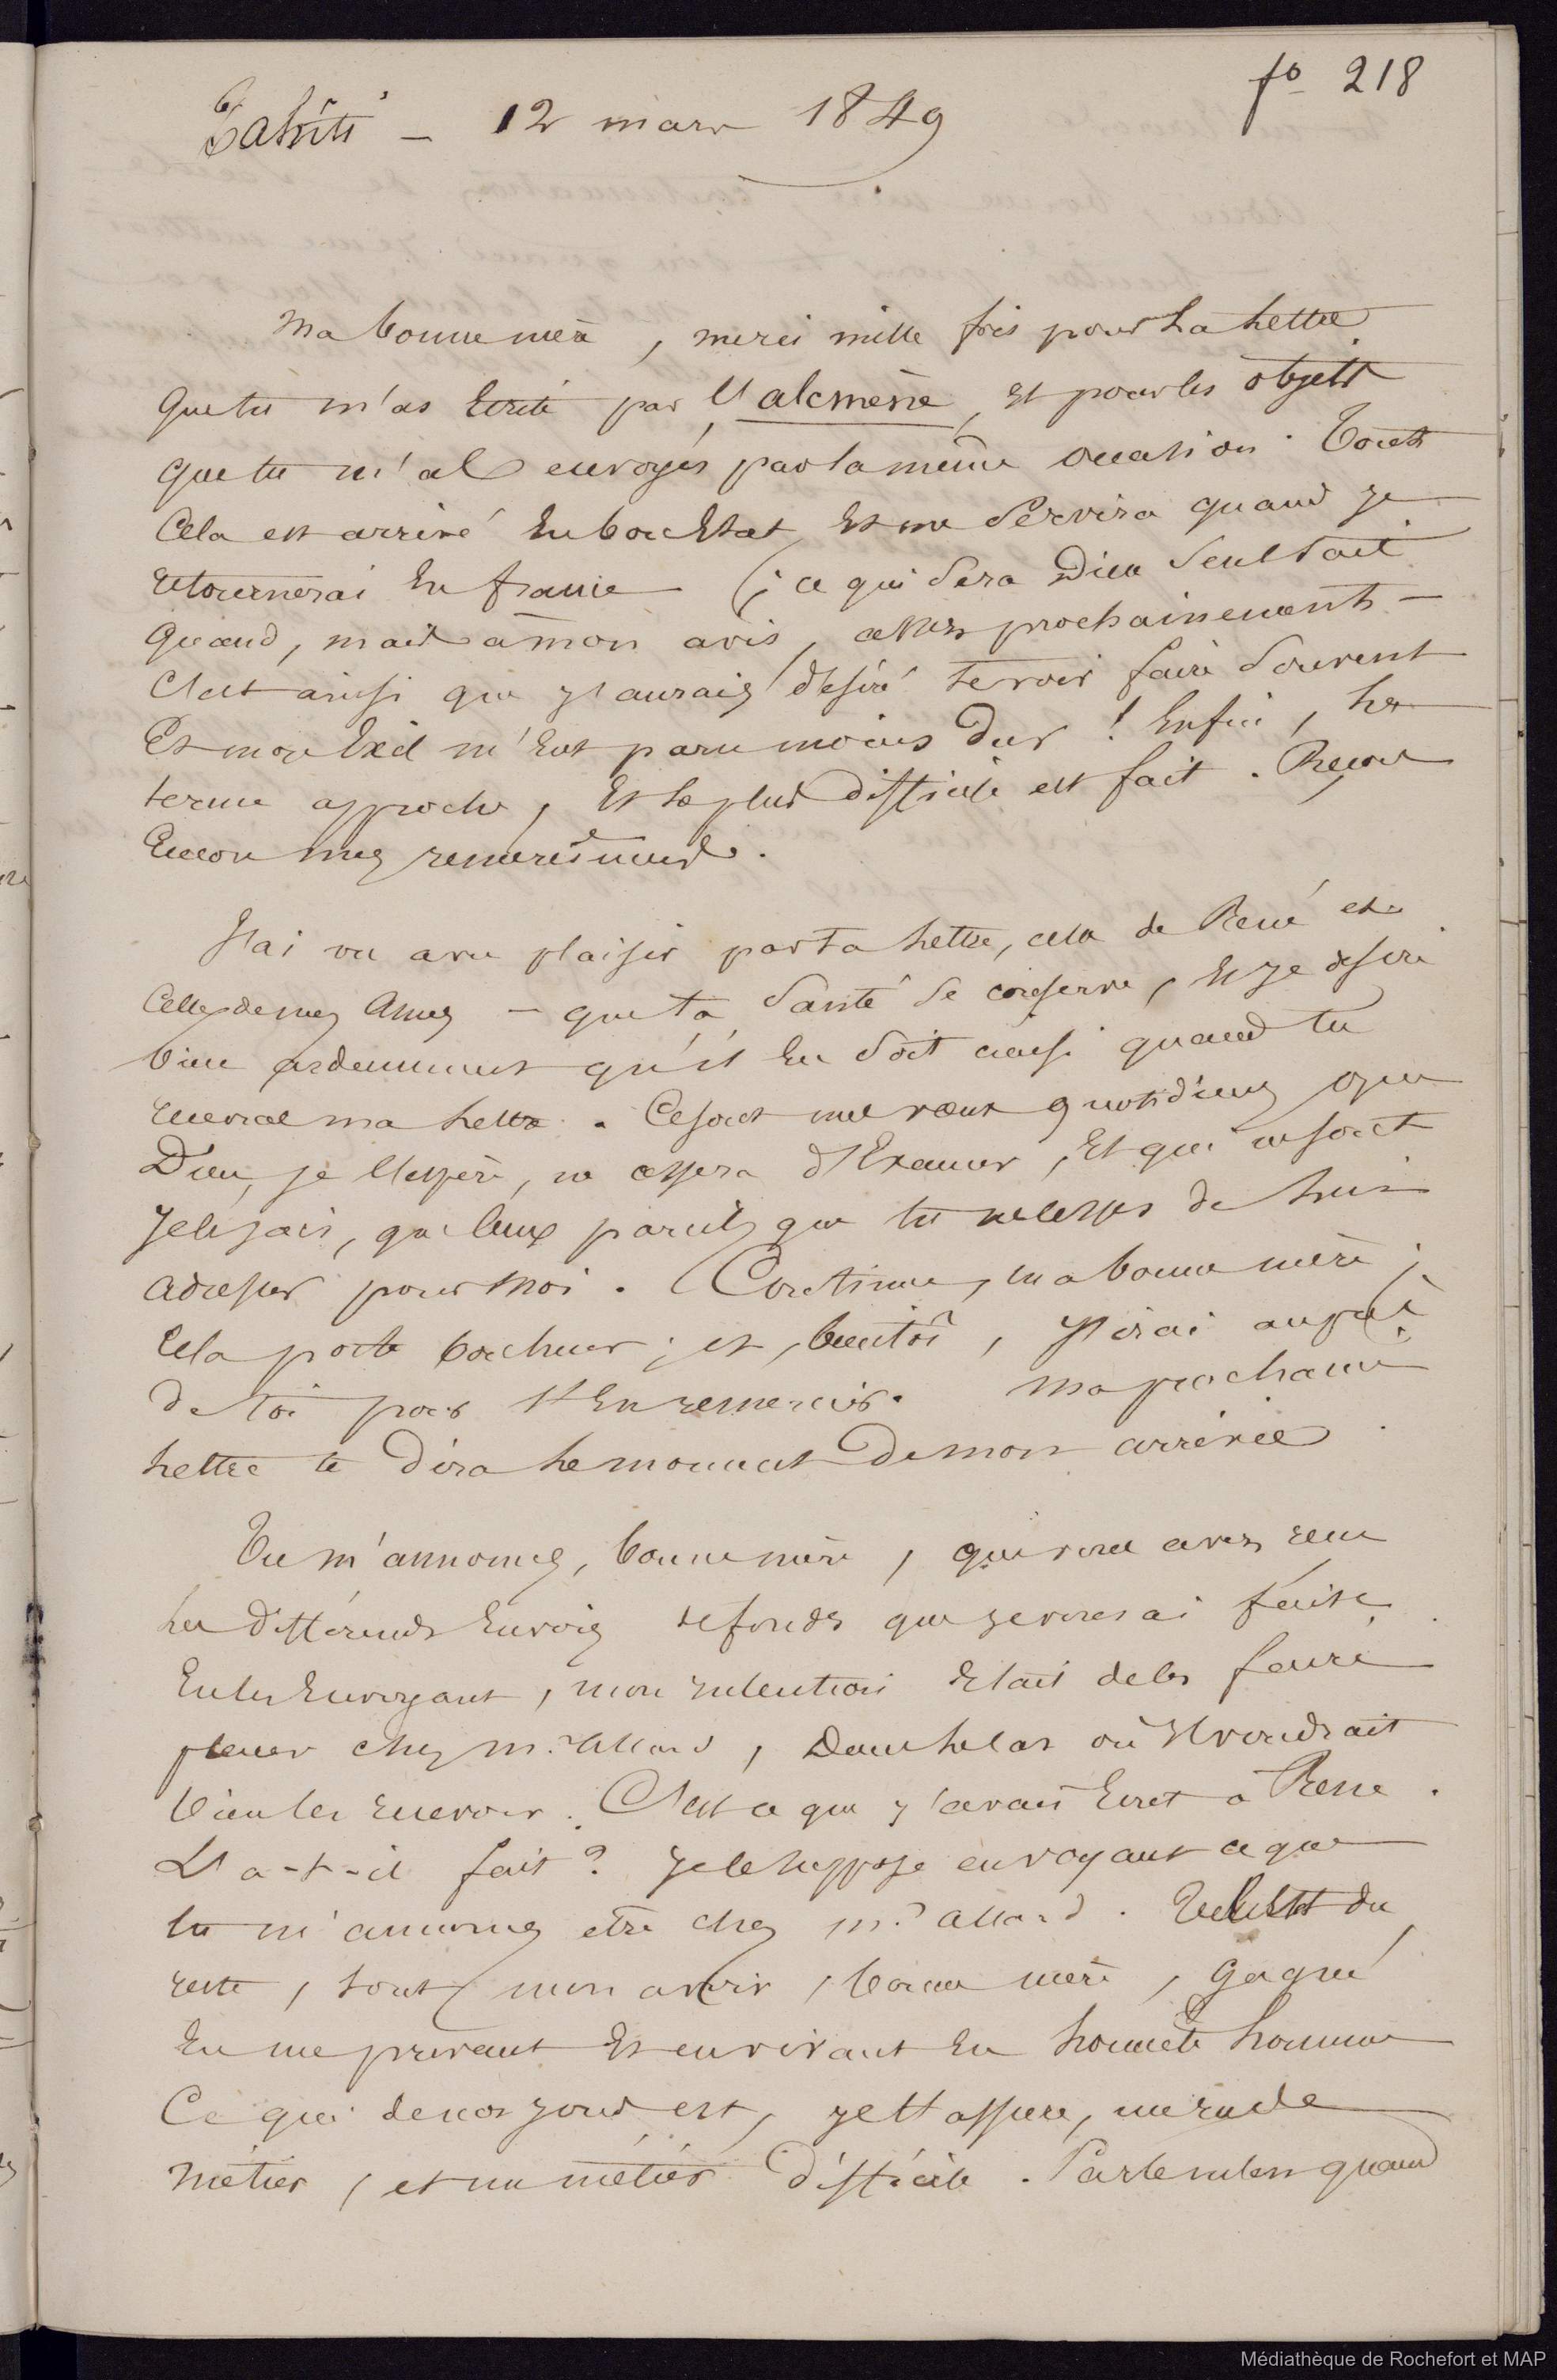 fo 218
Tahiti - 12 mars 1849
Ma bonne mère, merci mille fois pour La Lettre
Que tu m'as Ecrite par l'alcmène, Et pour les objets
que tu m'as envoyés par la même occasion. Tout
Cela est arrivé En bon Etat, Et me Servira quand je
retournerai En france (; ce qui Sera Dieu Seul Sait
Quand, mais à mon avis, assez prochainement -
C'est ainsi que j'aurais désiré te voir faire Souvent
Et mon Exil m'eut paru moins Dur ! Enfin, Le
terme approche, Et Le plus Difficile est fait. Reçois
Encore mes remerciements.
J'ai vu avec plaisir par ta Lettre, celle de René et
Celles de mes Amis - que ta Santé Se conserve, Et je desire
bien ardemment qu'il En Soit ainsi quand tu
recevras ma Lettre. Ce sont mes vœux quotidiens que
Dieu, je l'espère, ne cessera d'Exaucer, Et qui ne sont
Je le sais, que ceux pareils que tu ne cesses de Lui
adresser pour moi. Continue, ma bonne mère ;
Cela porte bonheur ; et, bientôt, J'irai auprès
de toi pour t'En remercier. Ma prochaine
Lettre te Dira Le moment De mon arrivée
Tu m'annonces, bonne mère, que vous avez reçu
Les Différends Envois de fonds que je vous ai faits.
En les Envoyant, mon intention Etait de les faire
placer chez mr. Allard, Dans Le cas où Il voudrait
bien les recevoir. C'est ce que j'avais Ecrit à René.
L'a-t-il fait ? Je le suppose en voyant ce que
tu m'annonces être chez mr. Allard. C'est du
reste, tout mon avoir, bonne mère, gagné
En me privant Et en vivant En honnête homme
Ce qui de nos jours est, je t'assure, un rude
métier, et un métier Difficile. Parle m'en quand
Médiathèque de Rochefort et MAP